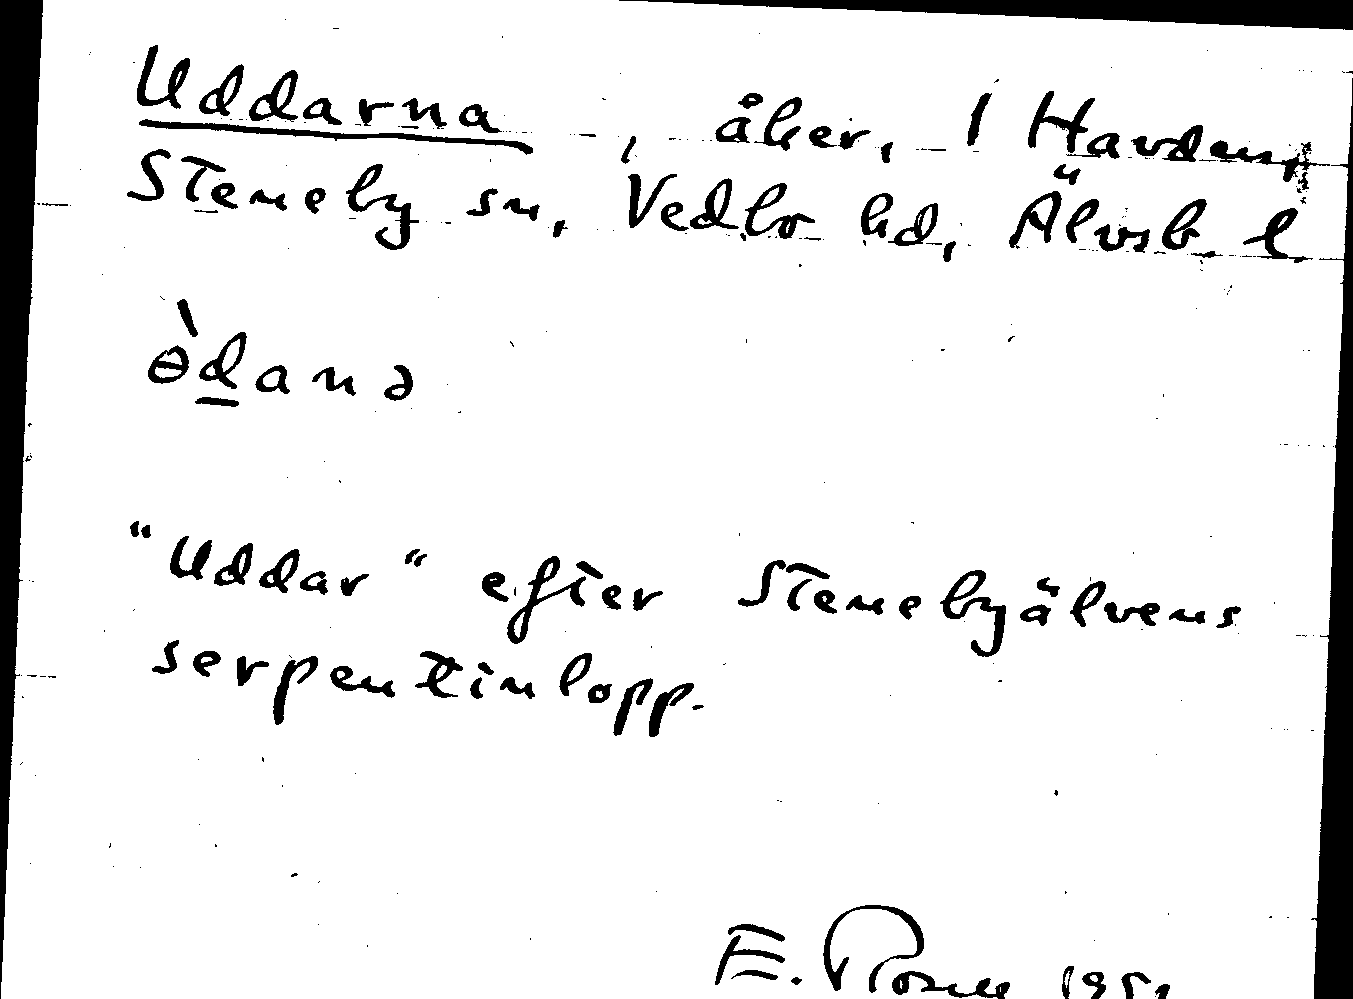 Uddarna, åker, 1 Havden,
Steneby sn, Vedbo hd, Älvsb. l
ɵ̀da̱nə
"Uddar" efter Stenebyälvens
serpentinlopp.
E. Rosell 1951